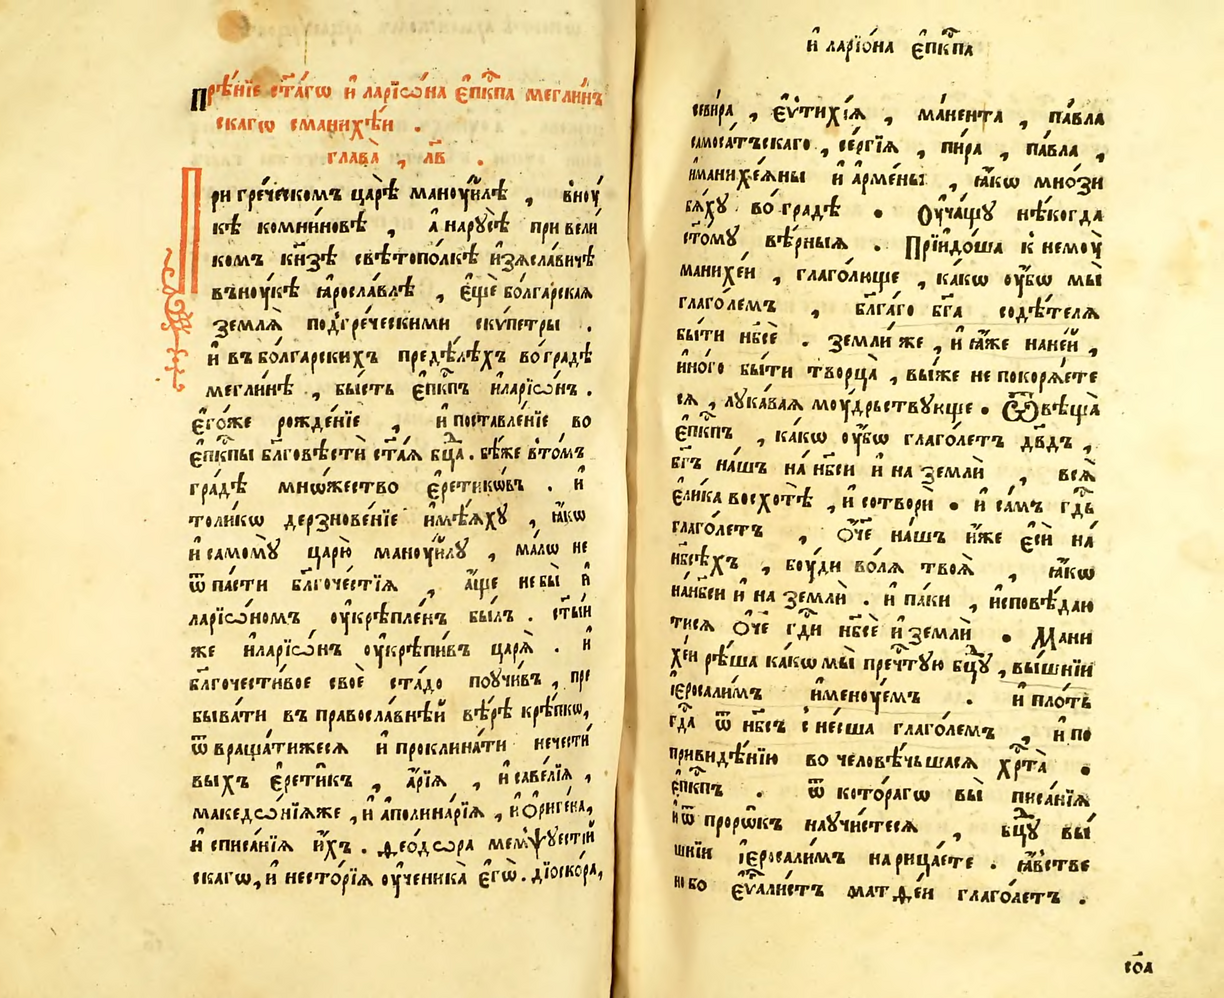 Прѣ́нїе ст҃а́гѡ и҆ ларїѡ́на є҆пкⷭ҇па мегли́нъ
скагѡ сманихѣ́и .
глава̀ , л҃в .
При гре́ческомъ царѣ̀ маноуи́лѣ , вноу́
кѣ комни́новѣ , а҆ нарꙋсѣ̀ при вели́
комъ кн҃зѣ свѣтопо́лкѣ и҆зѧсла́вичѣ
въноукѣ ꙗ҆росла́влѣ , є҆щѐ болга́рскаѧ
землѧ̀ под̾гре́ческими ски́петры .
и҆ въ болга́рскихъ предѣ́лѣхъ во градѣ
мегли́нѣ , бы́сть є҆пкⷭ҇пъ и҆ларїѡ́нъ .
є҆го́же рожде́нїе , и҆ поставле́нїе во
є҆пкⷭ҇пы бл҃говѣсти ст҃а́ѧ бцⷣа . бѣ́же в̾то́мъ
гра́дѣ мнѡ́жество є҆ретикѡ́въ . и҆
толи́кѡ дерзнове́нїе и҆мѣ́ѧхꙋ , ꙗ҆́кѡ
и҆ самомꙋ̀ царю̀ маноуи́лꙋ , ма́лѡ не
ѿ па́сти бл҃гоче́стїѧ , а҆́ще не бы̀ и҆
ларїѡ́номъ оу҆крѣпле́нъ бы́лъ . ст҃ы́и
же и҆ларїѡ́нъ оу҆крѣпи́въ царѧ̀ . и҆
бл҃гочести́вое своѐ ста́до поучи́въ , пре
быва́ти въ правосла́внѣй вѣ́рѣ крѣ́пкѡ,
ѿ враща́тижесѧ и҆ проклина́ти нечести́
выхъ є҆рети́къ , а҆́рїѧ , и҆ саве́лїѧ ,
македѡ́нїѧже , и҆ а҆полина́рїѧ , и҆ ѻ҆риге́на,
и҆ списа́нїѧ и҆́хъ . ѳеѻ́дѡра мемѱꙋести́й
скагѡ, и҆ несто́рїѧ оу҆ченика̀ є҆гѡ̀ . дїоско́ра,
и҆ ларїо́на є҆пкⷭ҇па
севи́ра , є҆ѵти́хїѧ , ма́нента , па́вла
самоса́тъскаго , се́ргїѧ , пи́ра , па́вла ,
и҆манихе́ѧны и҆ а҆рме́ны , ꙗ҆́кѡ мно́зи
бѧ́хꙋ во гра́дѣ . Оу҆ча́щꙋ нѣ́когда
ст҃о́мꙋ вѣ́рныѧ . Прїидо́ша к̾ немоу̀
манихе́и , глаго́лище , ка́кѡ оу҆́бѡ мы̀
глаго́лемъ , бл҃га́го бг҃а содѣ́телѧ
бы́ти нб҃сѐ . земли́ же , и҆ ꙗ҆́же на не́й ,
и҆но́го бы́ти творца̀ , вы́же не покорѧ́ете
сѧ , лꙋка́ваѧ моу́дрьствꙋюще . Ѿвѣща̀
є҆пкⷭ҇пъ , ка́кѡ оу҆́бѡ глаго́летъ дв҃дъ ,
бг҃ъ на́шъ на́ нб҃си и҆ на землѝ , всѧ̀
є҆ли́ка восхотѣ̀ , и҆ сотворѝ . и҆ са́мъ гдⷭ҇ь
глаго́летъ , ѻ҆́ч҃е на́шъ и҆́же є҆сѝ на́
нб҃сѣ́хъ , бꙋ́ди во́лѧ твоѧ̀ , ꙗ҆́кѡ
на́нб҃си и҆ на землѝ . и҆ па́ки , и҆сповѣ́даю
тисѧ ѻ҆́ч҃е гдⷭ҇и нб҃сѐ и҆ землѝ . Мани
хе́и рѣ́ша ка́кѡ мы̀ пречⷭ҇тꙋю бцⷣꙋ , вы́шнїи
і҆єросали́мъ и҆меноу́емъ . и҆ пло́ть
гдⷭ҇а ѿ нб҃съ с̾не́сша глаго́лемъ , и҆ по
привидѣ́нїю во человѣ́чьшасѧ хрⷭ҇та̀ .
є҆пкⷭ҇пъ . ѿ кото́рагѡ вы̀ писа́нїѧ
и҆ ѿ проро́къ наꙋчи́стесѧ , бцⷣꙋ вы́
шнїи і҆єросали́мъ нарица́ете . ꙗ҆́встве
но бо є҆ѵⷢ҇али́стъ матѳе́и глаго́летъ .
со҃а